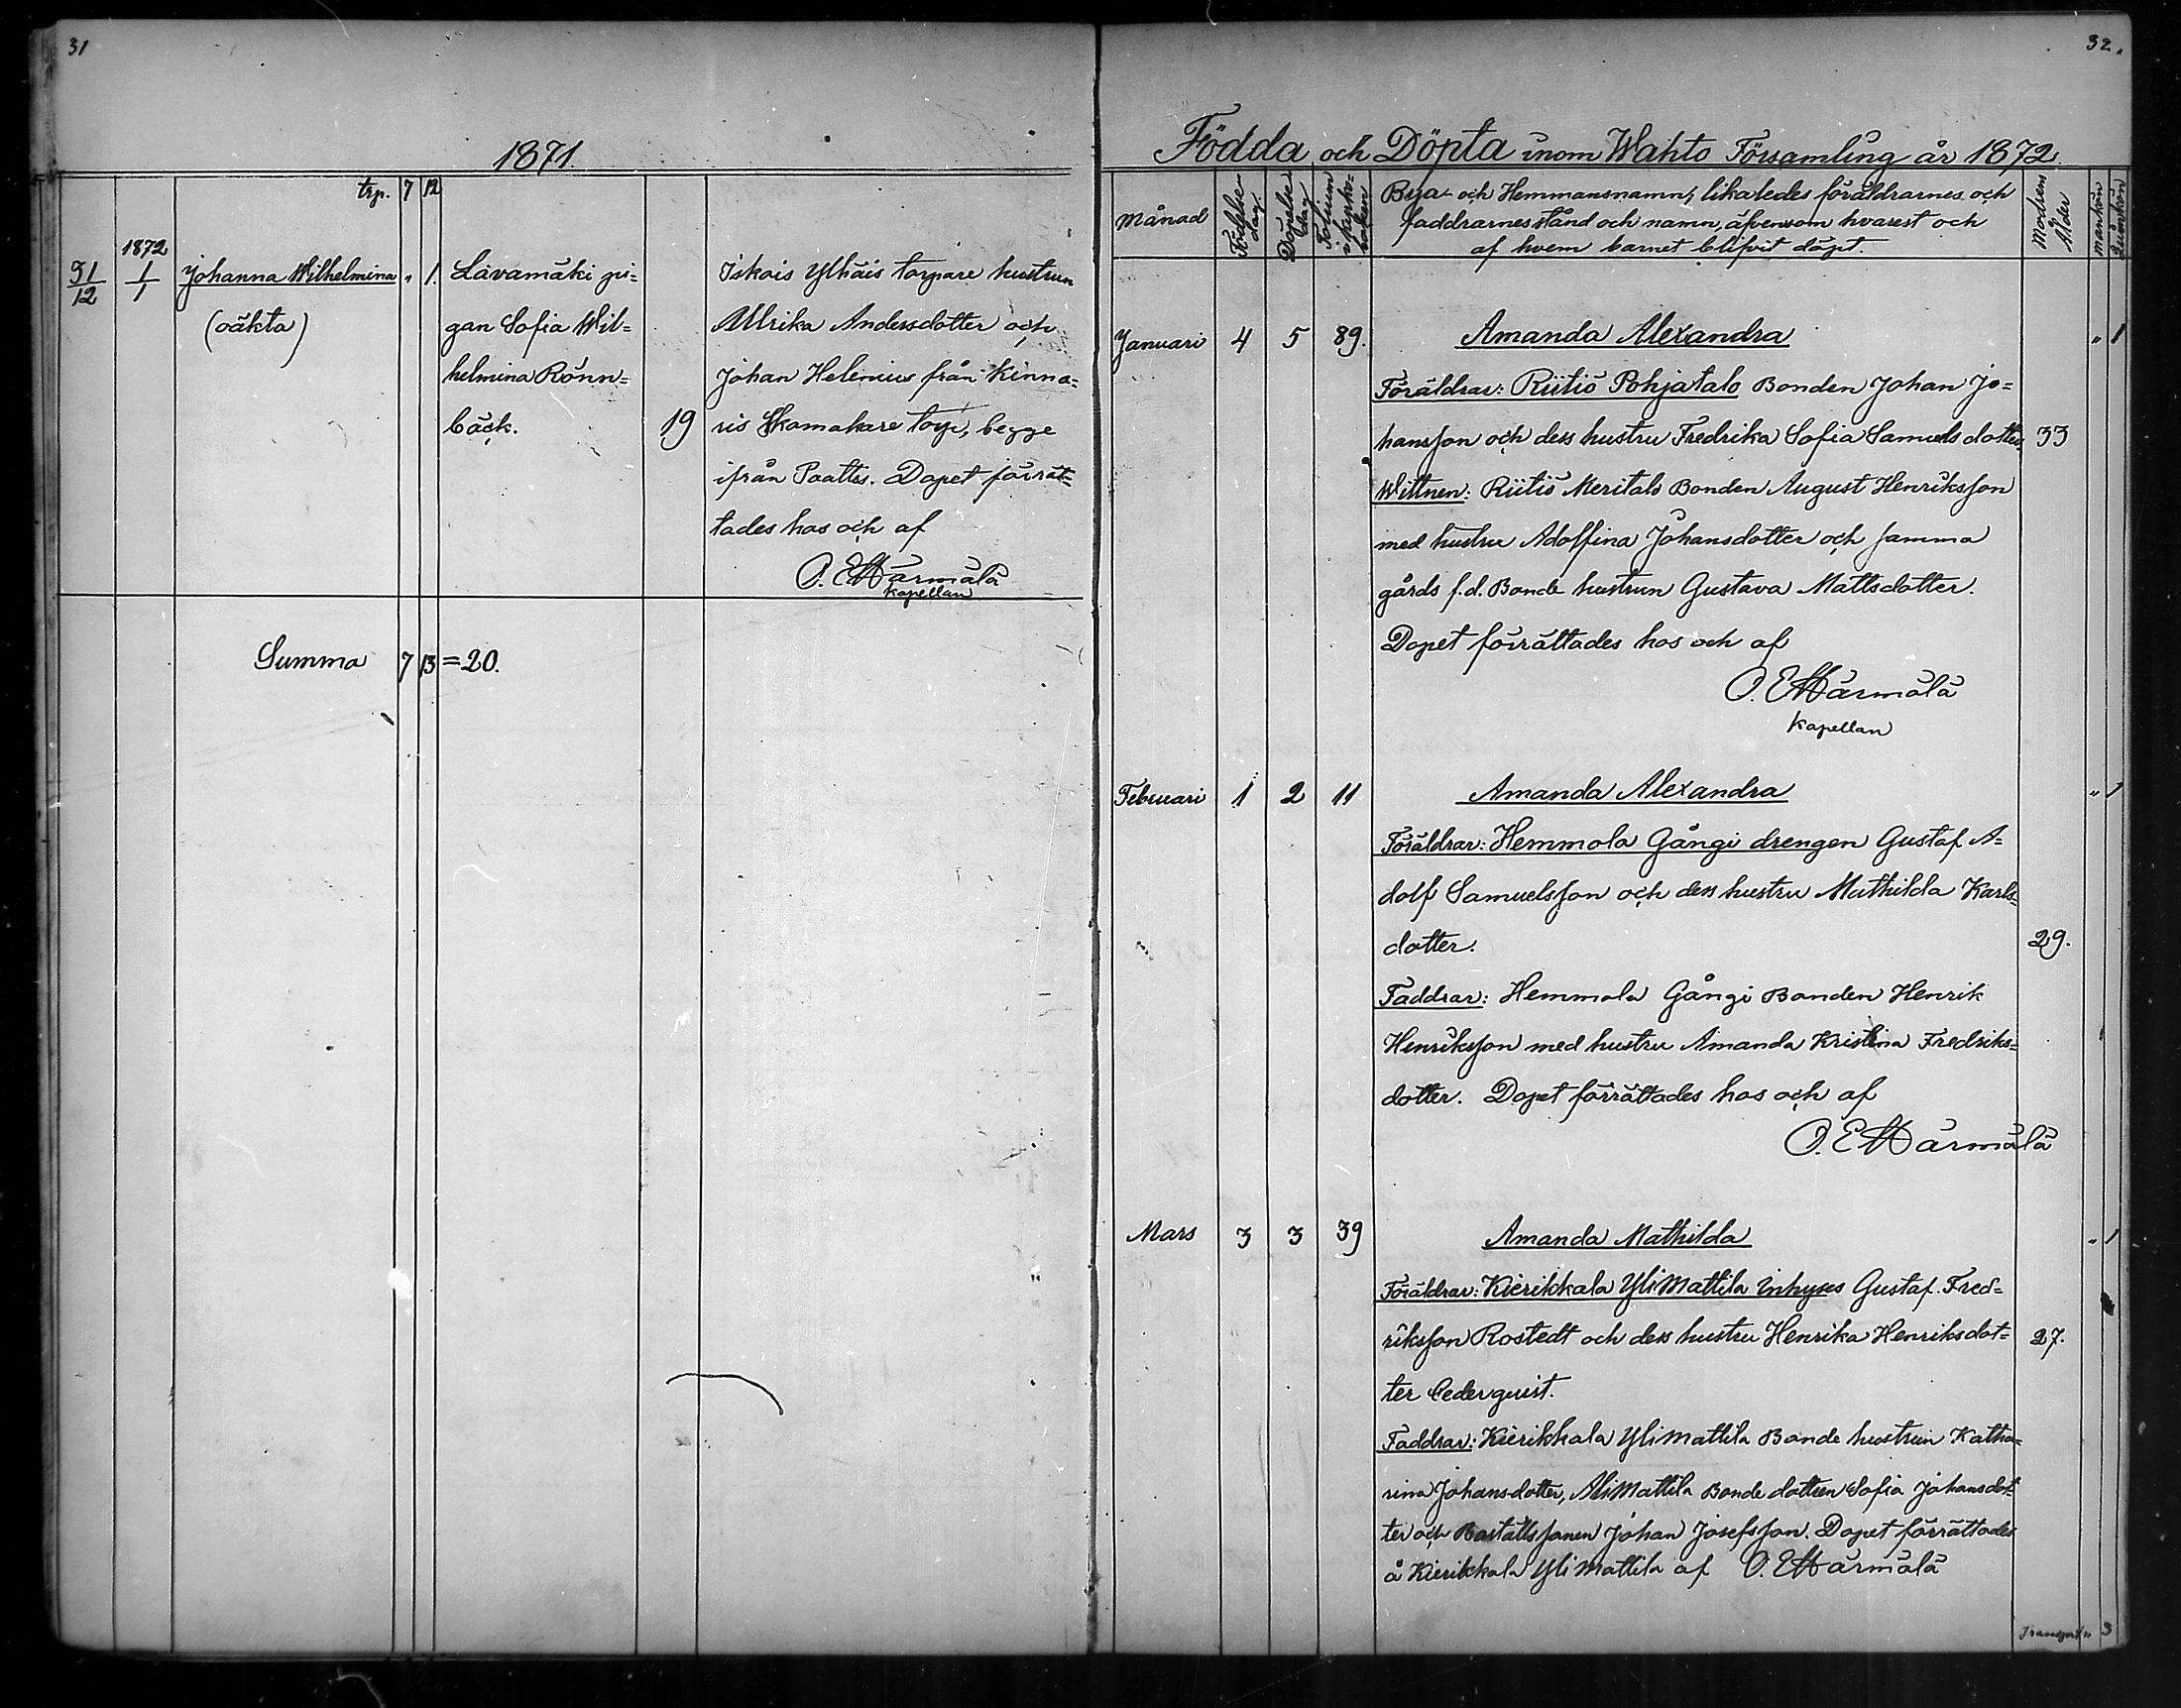 31
1871.
trp. 7 12
1872
31/12 1/1 Johanna Wilhelmina " 1. Lavamäki pi=
(oäkta) gan Sofia Wil=
helmina Rönn=
bäck. 19
Iskois Ylhäis torpare hustrun
Ulrika Andersdotter och
Johan Helenius från Kinna=
ris Skomakare torp, begge
ifrån Paattis. Dopet förrät=
tades hos och af
O. E. Härmälä
Kapellan
Summa 7 13 = 20.
32.
Födda och Döpta inom Wahto Församling år 1872.
Månad
Födelse-
dag.
Döpelse
dag
i kyrko=
boken
Bya- och Hemmansnamn, likaledes föräldrarnes och
faddrarnes stånd och namn, äfvensom hvarest och
af hvem barnet blifvit döpt.
Modrens
Ålder
mankön
Quinkön
Januari 4 5 89. Amanda Alexandra " 1
Föräldrar: Riitiö Pohjatalo Bonden Johan Jo=
hansson och dess hustru Fredrika Sofia Samuelsdotter. 33
Wittnen: Riitiö Meritalo Bonden August Henriksson
med hustru Adolfina Johansdotter och samma
gårds f.d. Bonde hustrun Gustava Mattsdotter.
Dopet förrättades hos och af
O. E. Härmälä
Kapellan
Februari 1 2 11 Amanda Alexandra " 1
Föräldrar: Hemmola Gångi drengen Gustaf A=
dolf Samuelsson och dess hustru Mathilda Karls=
dotter. 29.
Faddrar: Hemmola Gångi Bonden Henrik
Henriksson med hustru Amanda Kristina Fredriks=
dotter. Dopet förrättades hos och af
O. E. Härmälä
Mars 3 3 39 Amanda Mathilda " 1
Föräldrar: Kierikkala YliMattila Inhyses Gustaf Fred=
riksson Rostedt och dess hustru Henrika Henriksdot= 27.
ter Cederquist.
Faddrar: Kierikkala Ylimattila Bonde hustrun Katha=
rina Johansdotter, AliMattila Bonde dottren Sofia Johansdot=
ter och Johan Josefsson. Dopet förrättades
å Kierikkala YliMattila af O. E. Härmälä
Transport " 3